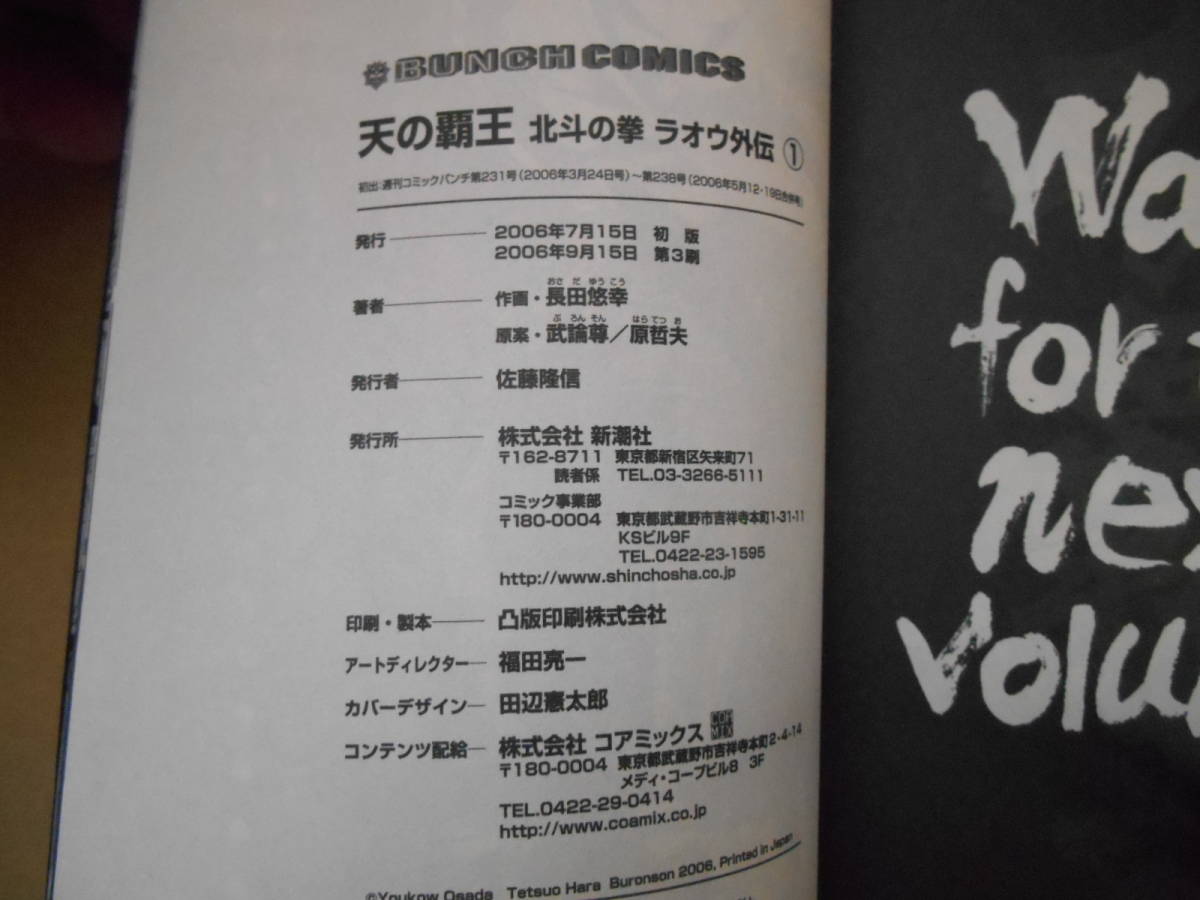 BUNCH COMICS
天の覇王 北斗の拳 ラオウ外伝 ①
初出:週刊コミックバンチ第231号(2006年3月24日号)~第238号(2006年5月12・19日合併号)
発行 2006年7月15日 初版
2006年9月15日 第3刷
著者 作画・長田悠幸
おさ だ ゆう こう
原案・武論尊/原哲夫
ぶ ろん そん はら てつ お
発行者 佐藤隆信
発行所 株式会社 新潮社
〒162-8711 東京都新宿区矢来町71
読者係 TEL.03-3266-5111
コミック事業部
〒180-0004 東京都武蔵野市吉祥寺本町1-31-11
KSビル9F
TEL.0422-23-1595
http://www.shinchosha.co.jp
印刷・製本 凸版印刷株式会社
アートディレクター 福田亮一
カバーデザイン 田辺憲太郎
コンテンツ配給 株式会社 コアミックス COAMIX
〒180-0004 東京都武蔵野市吉祥寺本町2-4-14
メディ・コープビル8 3F
TEL.0422-29-0414
http://www.coamix.co.jp
©Youkow Osada Tetsuo Hara Buronson 2006, Printed in Japan
Wa
for
nex
volu